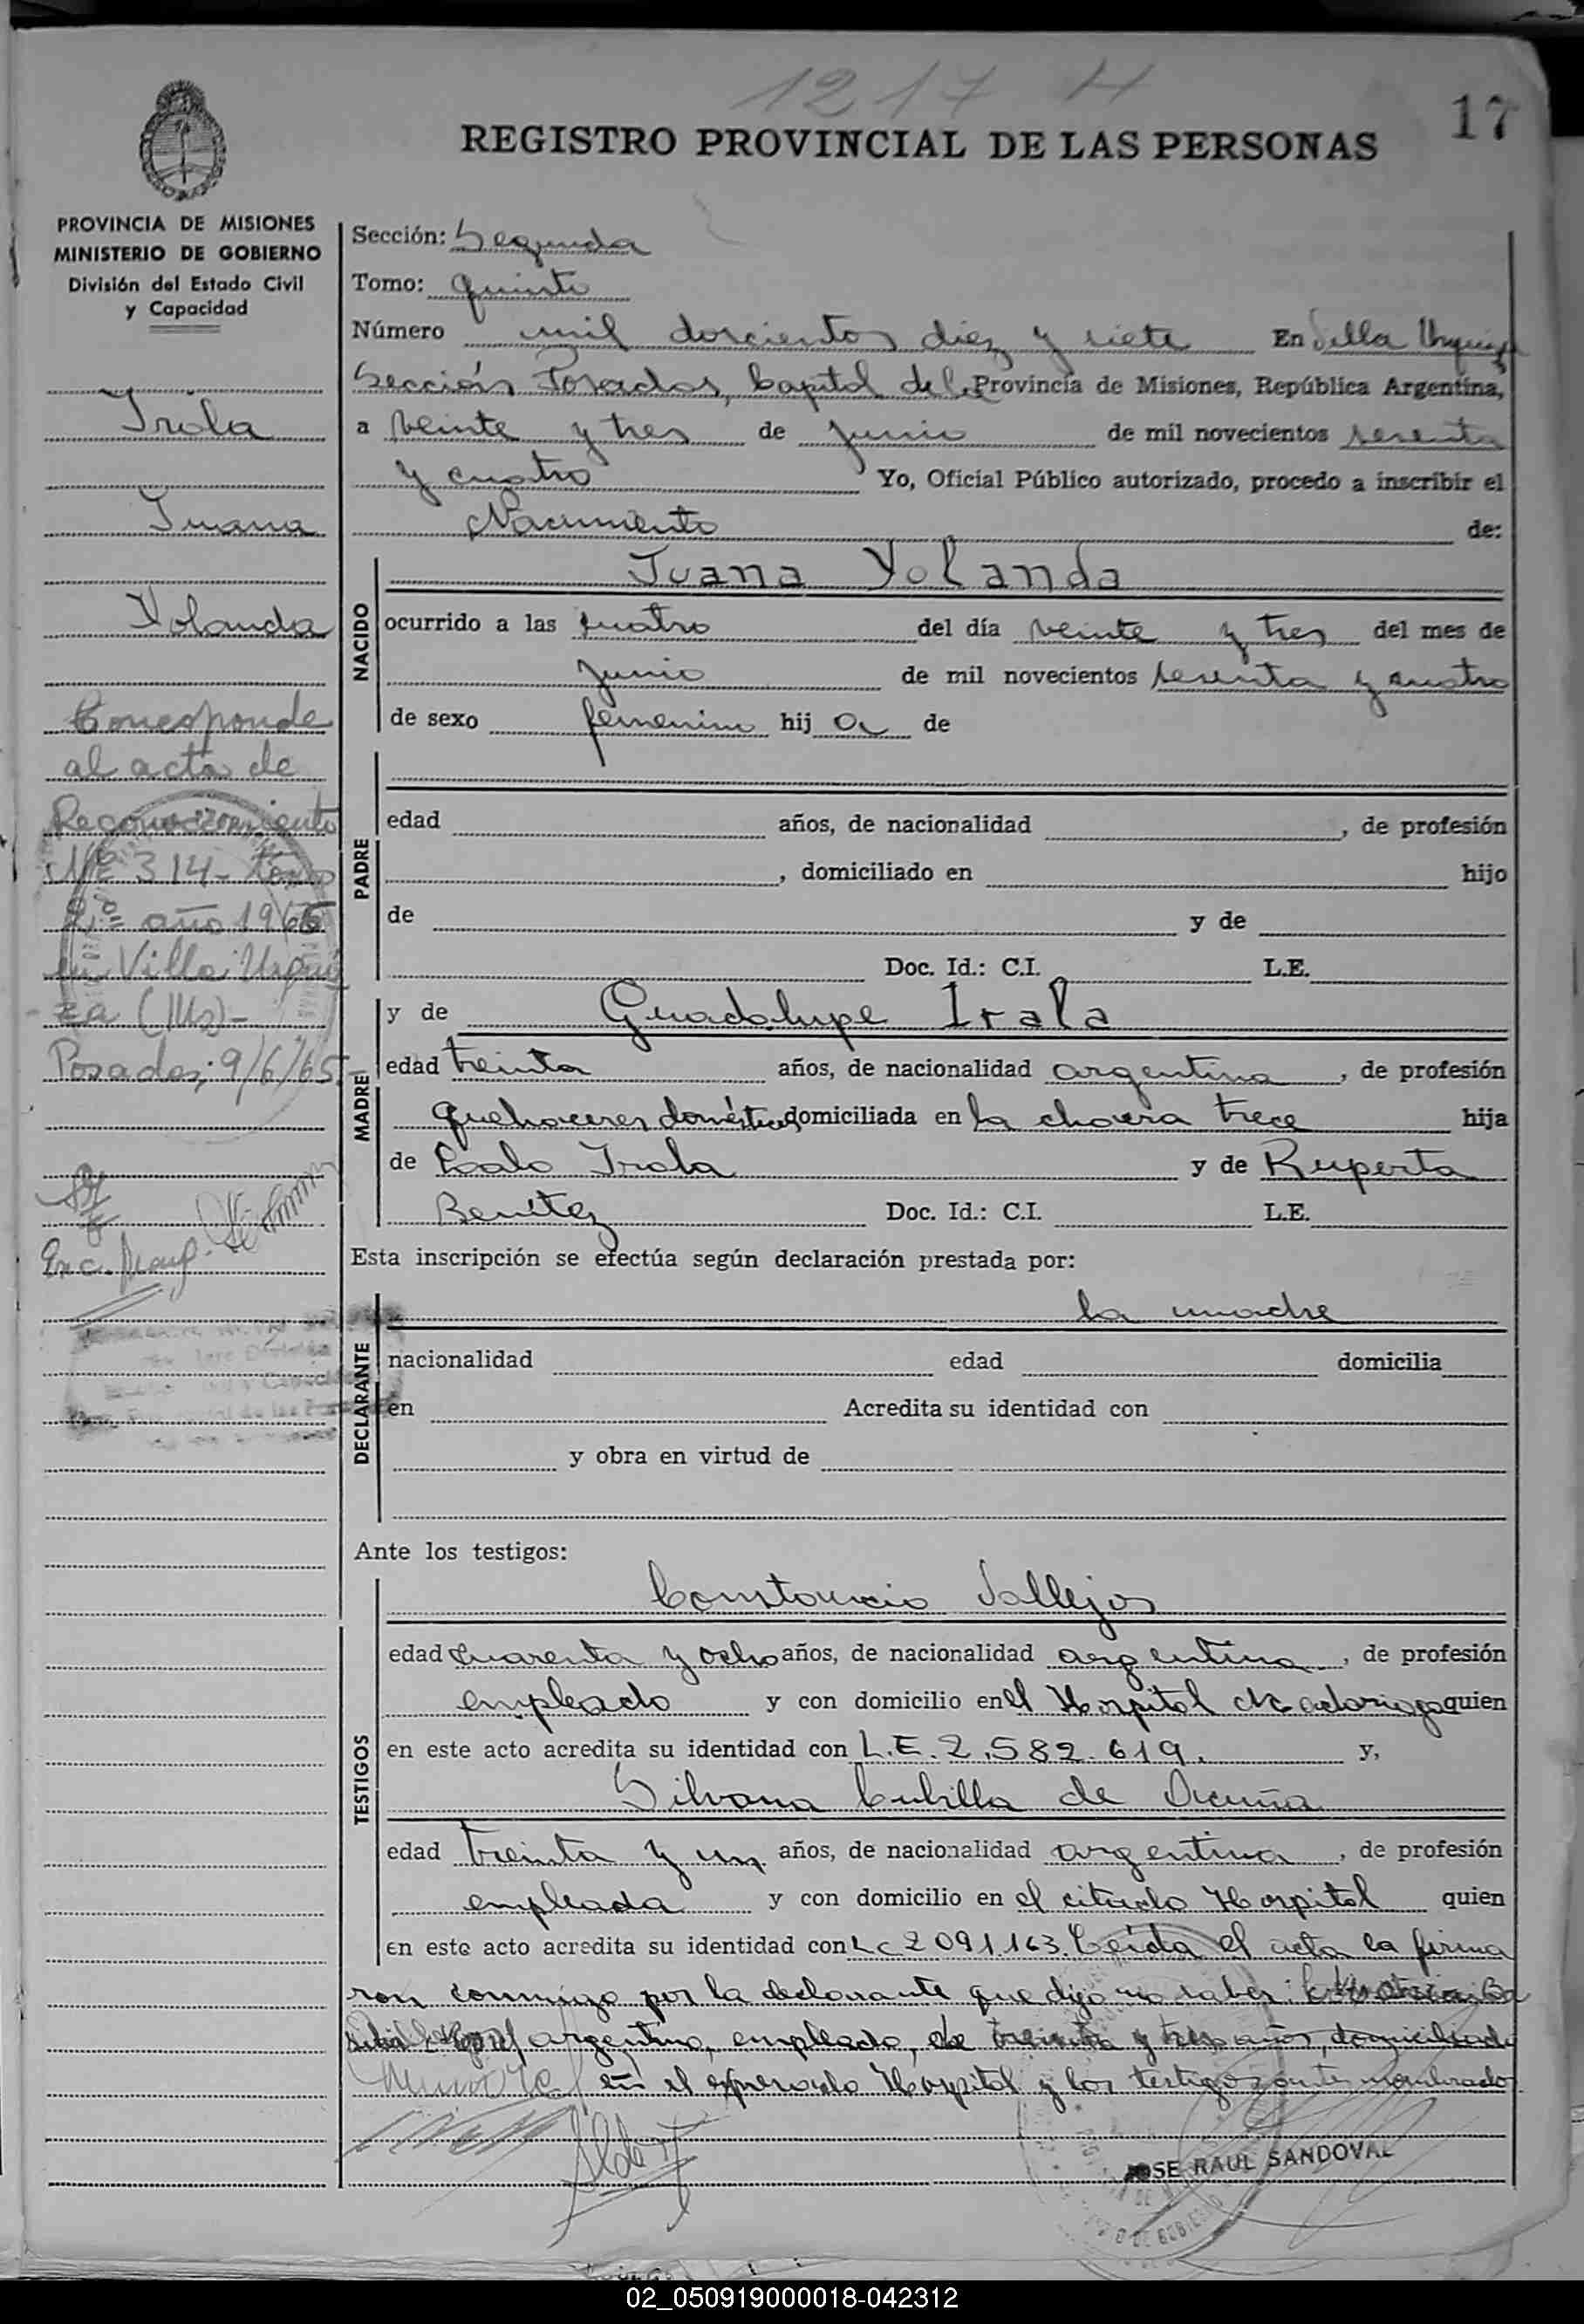 1217 H
17
REGISTRO PROVINCIAL DE LAS PERSONAS
PROVINCIA DE MISIONES
MINISTERIO DE GOBIERNO
División del Estado Civil
y Capacidad
Irala
Juana
Yolanda
Corresponde
al acta de
Reconocimiento
Nº 314- tomo
2º año 1965
en Villa Urqui
-za (Ms)-
Posadas, 9/6/65.
Enc.
Sección: Segunda
Tomo: quinto
Número mil doscientos diez y siete En Villa Urquiza
Sección Posadas, Capital de la Provincia de Misiones, República Argentina,
a veinte y tres de junio de mil novecientos sesenta
y cuatro Yo, Oficial Público autorizado, procedo a inscribir el
Nacimiento de:
NACIDO
Juana Yolanda
ocurrido a las cuatro del día veinte y tres del mes de
junio de mil novecientos sesenta y cuatro
de sexo femenino hij a de
PADRE
edad años, de nacionalidad , de profesión
, domiciliado en hijo
de y de
Doc. Id.: C.I. L.E.
MADRE
y de Guadalupe Irala
edad treinta años, de nacionalidad argentina , de profesión
quehaceres domésticos domiciliada en la chacra trece hija
de Irala y de Ruperta
Benitez Doc. Id.: C.I. L.E.
Esta inscripción se efectúa según declaración prestada por:
DECLARANTE
la madre
nacionalidad edad domicilia
en Acredita su identidad con
y obra en virtud de
Ante los testigos:
TESTIGOS
Constancio Vallejos
edad cuarenta y ocho años, de nacionalidad argentina , de profesión
empleado y con domicilio en el Hospital Madariaga quien
en este acto acredita su identidad con L.E. 2.582.619. y,
Silvana Cubilla de Acuña
edad treinta y un años, de nacionalidad argentina , de profesión
empleada y con domicilio en el citado Hospital quien
en este acto acredita su identidad con LC 2091.163. Leída el acta la firma
ron conmigo por la declarante que dijo no saber:
argentino, empleado, de treinta y tres años, domiciliado
en el expresado Hospital y los testigos antes nombrados
JOSE RAUL SANDOVAL
02_050919000018-042312